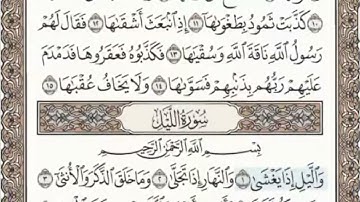 ١٠ كَذَّبَتْ ثَمُودُ بِطَغْوَىٰهَآ ١١ إِذِ ٱنۢبَعَثَ أَشْقَىٰهَا ١٢ فَقَالَ لَهُمْ
رَسُولُ ٱللَّهِ نَاقَةَ ٱللَّهِ وَسُقْيَٰهَا ١٣ فَكَذَّبُوهُ فَعَقَرُوهَا فَدَمْدَمَ
عَلَيْهِمْ رَبُّهُم بِذَنۢبِهِمْ فَسَوَّىٰهَا ١٤ وَلَا يَخَافُ عُقْبَٰهَا ١٥
سُورَةُ ٱللَّيْلِ
بِسْمِ ٱللَّهِ ٱلرَّحْمَٰنِ ٱلرَّحِيمِ
وَٱلَّيْلِ إِذَا يَغْشَىٰ ١ وَٱلنَّهَارِ إِذَا تَجَلَّىٰ ٢ وَمَا خَلَقَ ٱلذَّكَرَ وَٱلْأُنثَىٰٓ ٣